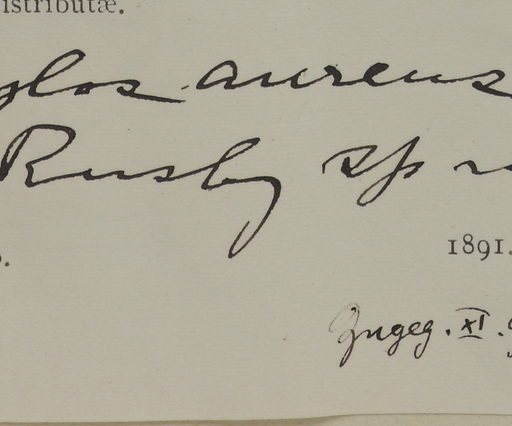 istributæ.
glos aureus
Rusby sp n
1891.
Zugeg. XI.